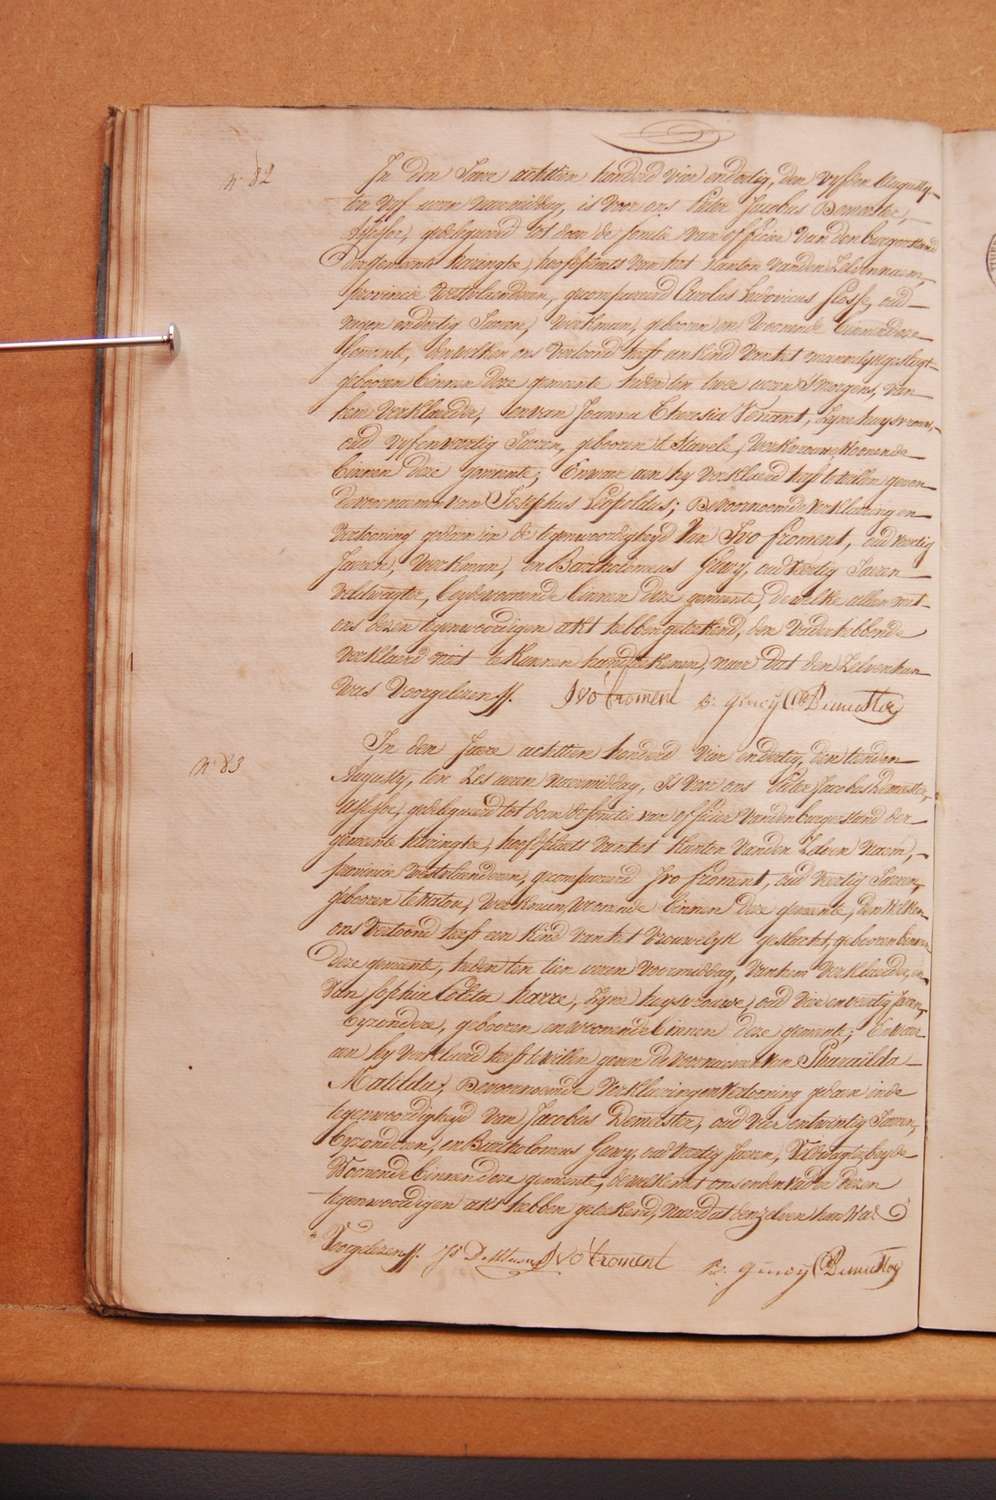 N° 82
In den Jaere achttien honderd vier en dertig, den vyfden Augusty,
ten vyf uren naermiddag, is voor ons Pieter Jacobus Demeester,
Assesse, gedelegueerd tot doen de fonctie van officier van den burgerstand
der gemeente haeringhe, hoofdplaets van het Kanton van den Zelven naem,
provincie Westvlaenderen, gecompareerd Carolus Ludovicus oud
negen en dertig Jaeren, werkman, geboren en woonende binnen deze
Gemeente, den welken ons vertoond heeft een kind van het mannelyk geslagt
geboren binnen deze gemeente heden ten twee uren 's morgens, van
hem verklaerder, en van Joanna Theresia Venant, zyne huysvrouw,
oud vyf en veertig Jaeren, geboren te Stavele, werkvrouw, woonende
binnen deze gemeente; En waer aen hy verklaerd heeft te willen geven
de voornaemen van Josephus Leopoldus; De voornoemde verklaering en
vertooning gedaen in de tegenwoordigheyd van Ivo froment, oud veertig
Jaeren, werkman, en Bartholomeus Gheuy, oud veertig Jaeren
veldwagter, beyde woonende binnen deze gemeente, de welke allen met
ons dezen tegenwoordigen akt hebben geteekend, den vader hebbende
verklaerd niet te kunnen handteekenen, naer dat den Zelven hun
was voorgelezen //. Ivo froment B: gheuy P Demeester
N° 83
In den Jaere achttien honderd vier en dertig, den tienden
Augusty, ten zes uren naermiddag, is voor ons Pieter Jacobus Demeester,
Assesse, gedelegueerd tot doen de fonctie van officier van den burgerstand der
gemeente haeringhe, hoofdplaets van het Kanton van den Zelven naem,
provincie westvlaenderen, gecompareerd Ivo froment, oud veertig Jaeren,
geboren te Waton, werkman, woonende binnen deze gemeente, den welken
ons vertoond heeft een kind van het vrouwelyk geslacht, geboren binnen
deze gemeente, heden ten tien uren voormiddag, van hem verklaerder, en
van Sophia Coleta harre, zyne huysvrouwe, oud vier en veertig Jaeren,
byzondere, geboren en woonende binnen deze gemeente; En waer
aen hy verklaerd heeft te willen geven de voornaemen van Pharaïlda
Matilda; De voornoemde verklaering en vertooning gedaen in de
tegenwoordigheyd van Jacobus Demester, oud vier en twintig Jaeren,
byzonderen, en Bartholomeus Gheuy, oud veertig Jaeren, veldwagter, beyde
Woonende binnen deze gemeente, de welke met ons en den vader dezen
tegenwoordigen akt hebben geteekend, naer dat den zelven hun was
Voorgelezen //. Js Demeester Ivo froment B: gheuy P Demeester